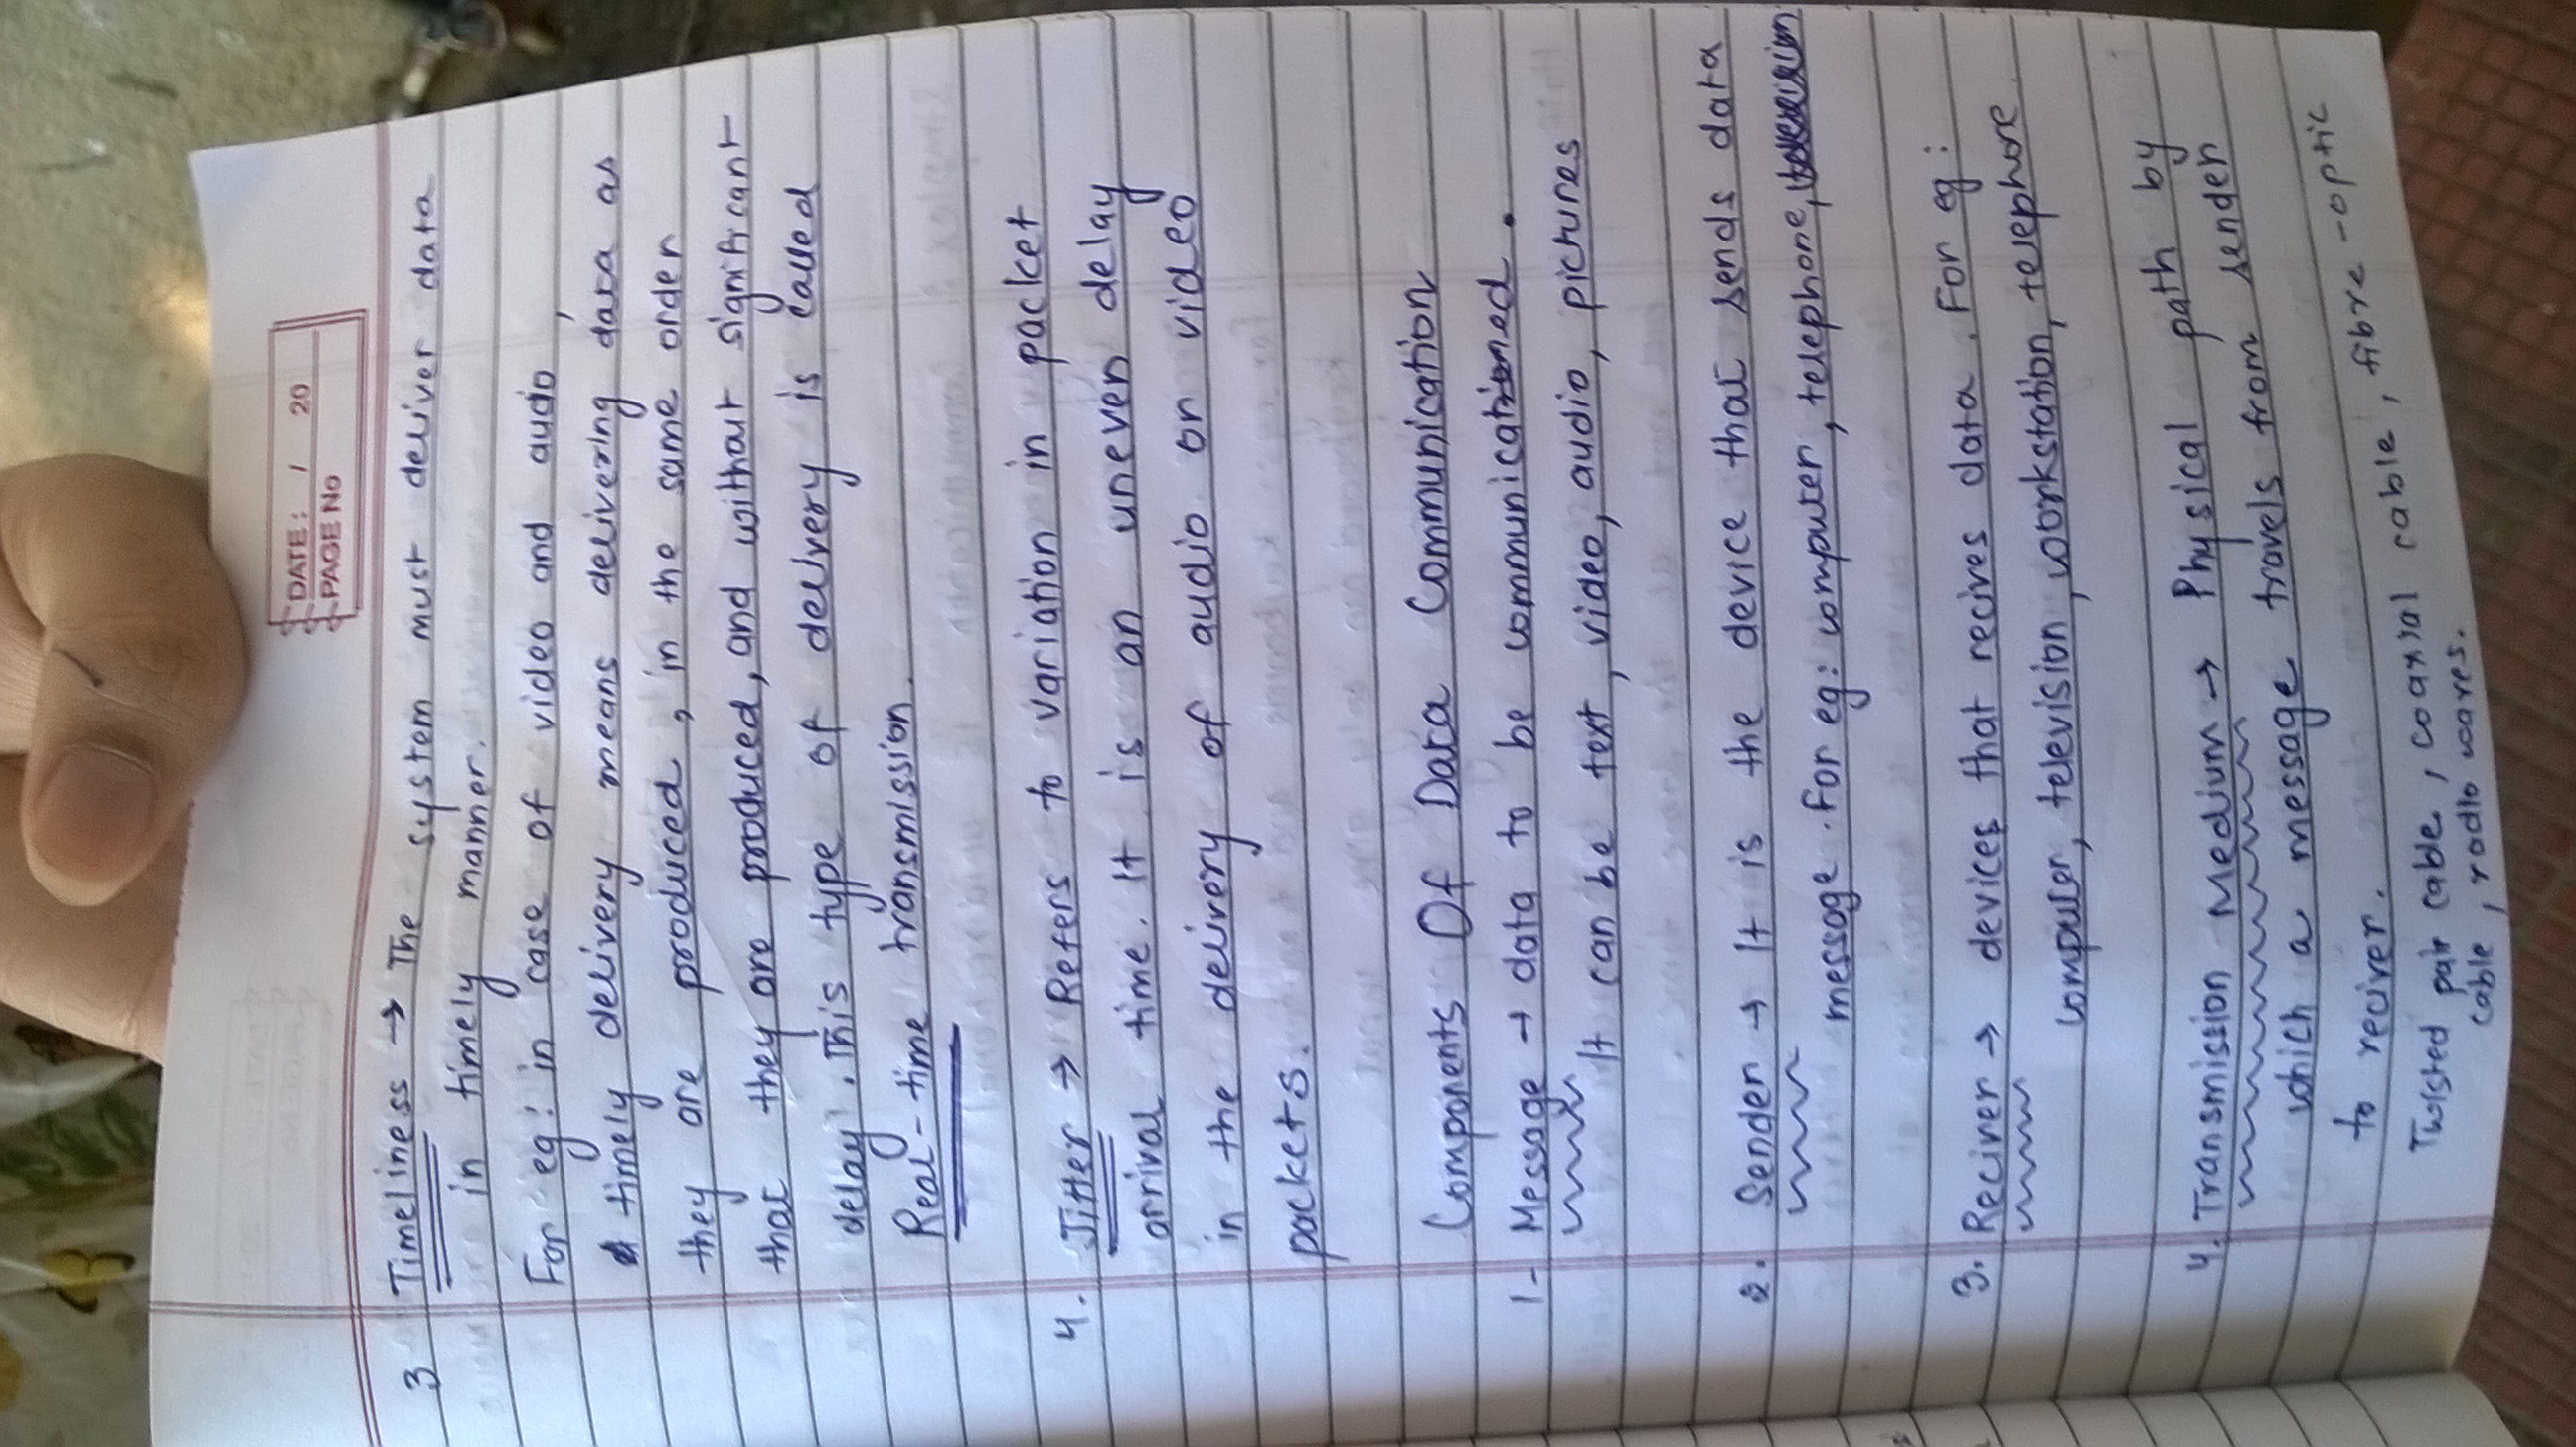 DATE: / 20
PAGE No
3 Timeliness → The system must deliver data
in timely manner.
For eg: in case of video and audio,
timely delivery means delivering data as
they are produced, in the same order
that they are produced, and without significant
delay. This type of delivery is called
Real-time transmission.
4. Jitter → Refers to variation in packet
arrival time. It is an uneven delay
in the delivery of audio or video
packets.
Components Of Data Communication
1- Message → data to be communicationed.
It can be text, video, audio, pictures
2. Sender → It is the device that sends data
message. For eg: computer, telephone,
3. Reciver → devices that recives data. For eg:
computer, television, workstation, telephone.
4. Transmission Medium → Physical path by
which a message travels from sender
to reciver.
Twisted pair cable, coaxial cable, fibre-optic
cable, radio waves.